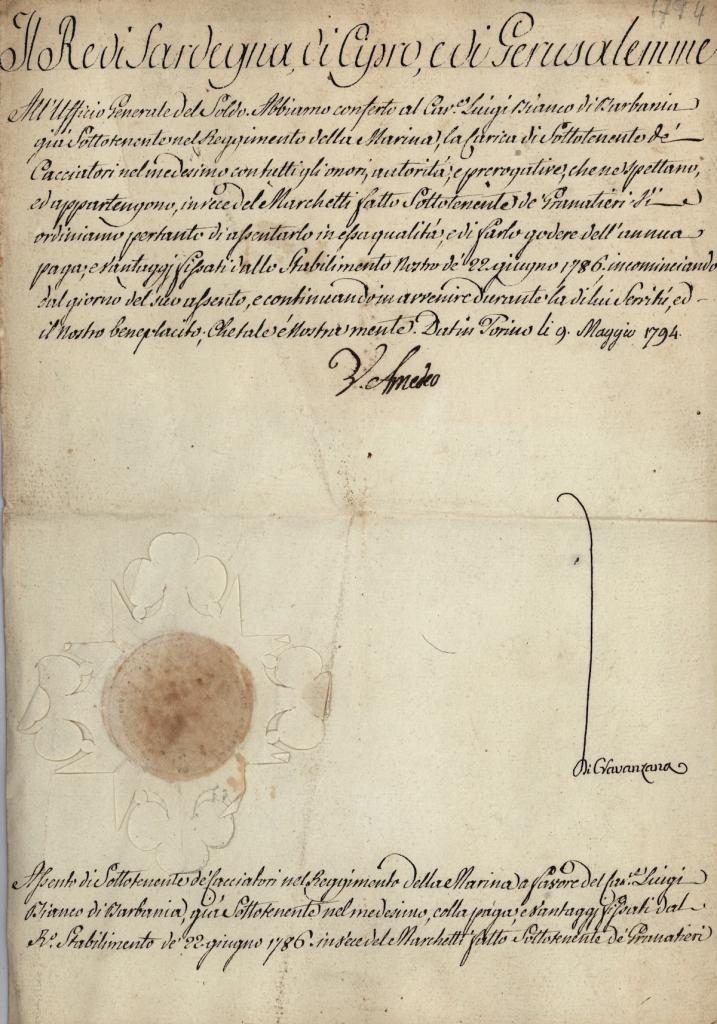 1794
Il Re di Sardegna, di Cipro, e di Gerusalemme
All'Ufficio Generale del Soldo. Abbiamo conferto al Cav.e Luigi Bianco di Barbania
già Sottotenente nel Reggimento della Marina, la Carica di Sottotenente de'
Cacciatori nel medesimo con tutti gli onori, autorità, e prerogative, che ne spettano,
ed appartengono, in vece del Marchetti fatto Sottotenente de' Granatieri. Vi
ordiniamo pertanto di assentarlo in essa qualità, e di farlo godere dell'annua
paga, e vantaggi fissati dallo Stabilimento Nostro de' 22. giugno 1786. incominciando
dal giorno del suo assento, e continuando in avvenire durante la di lui Servitù, ed
il Nostro beneplacito, Che tale è Nostra mente. Dat. in Torino li 9. Maggio 1794.
V. Amedeo
Di Cravanzana
Assento di Sottotenente de' Cacciatori nel Reggimento della Marina a favore del Cav.e Luigi
Bianco di Barbania, già Sottotenente nel medesimo, colla paga, e vantaggi fissati dal
R.o Stabilimento de' 22. giugno 1786. in vece del Marchetti fatto Sottotenente de' Granatieri